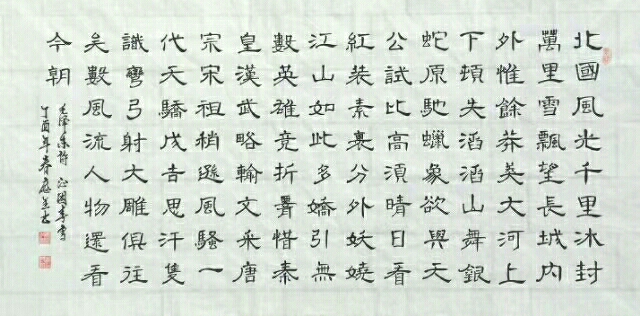 北國風光千里冰封
萬里雪飄望長城内
外惟餘莽莽大河上
下頓失滔滔山舞銀
蛇原馳蠟象欲與天
公試比高須晴日看
紅装素裹分外妖嬈
江山如此多嬌引無
數英雄竞折腰惜秦
皇漢武略輸文采唐
宗宋祖稍遜風騷一
代天驕成吉思汗隻
識彎弓射大雕俱往
矣數風流人物還看
今朝
毛澤東詩 沁園春雪
丁酉年春